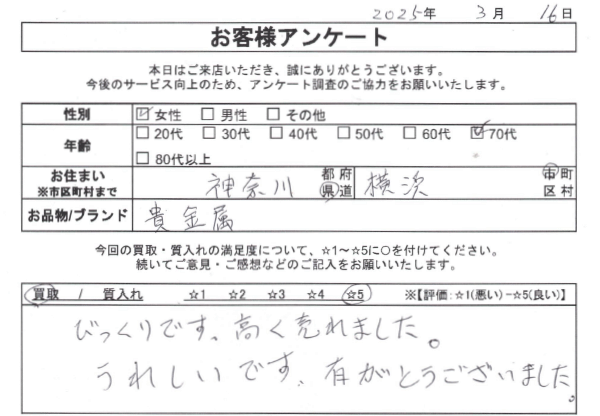 2025年 3月 16日
お客様アンケート
本日はご来店いただき、誠にありがとうございます。
今後のサービス向上のため、アンケート調査のご協力をお願いいたします。
性別 ☑女性 □男性 □その他
年齢 □20代 □30代 □40代 □50代 □60代 ☑70代
□80代以上
お住まい ※市区町村まで 神奈川 都府県道 横浜 市町区村
お品物/ブランド 貴金属
今回の買取・質入れの満足度について、☆1～☆5に○を付けてください。
続いてご意見・ご感想などのご記入をお願いいたします。
買取 / 質入れ ☆1 ☆2 ☆3 ☆4 ☆5 ※【評価:☆1(悪い)－☆5(良い)】
びっくりです、高く売れました。
うれしいです、有がとうございました。